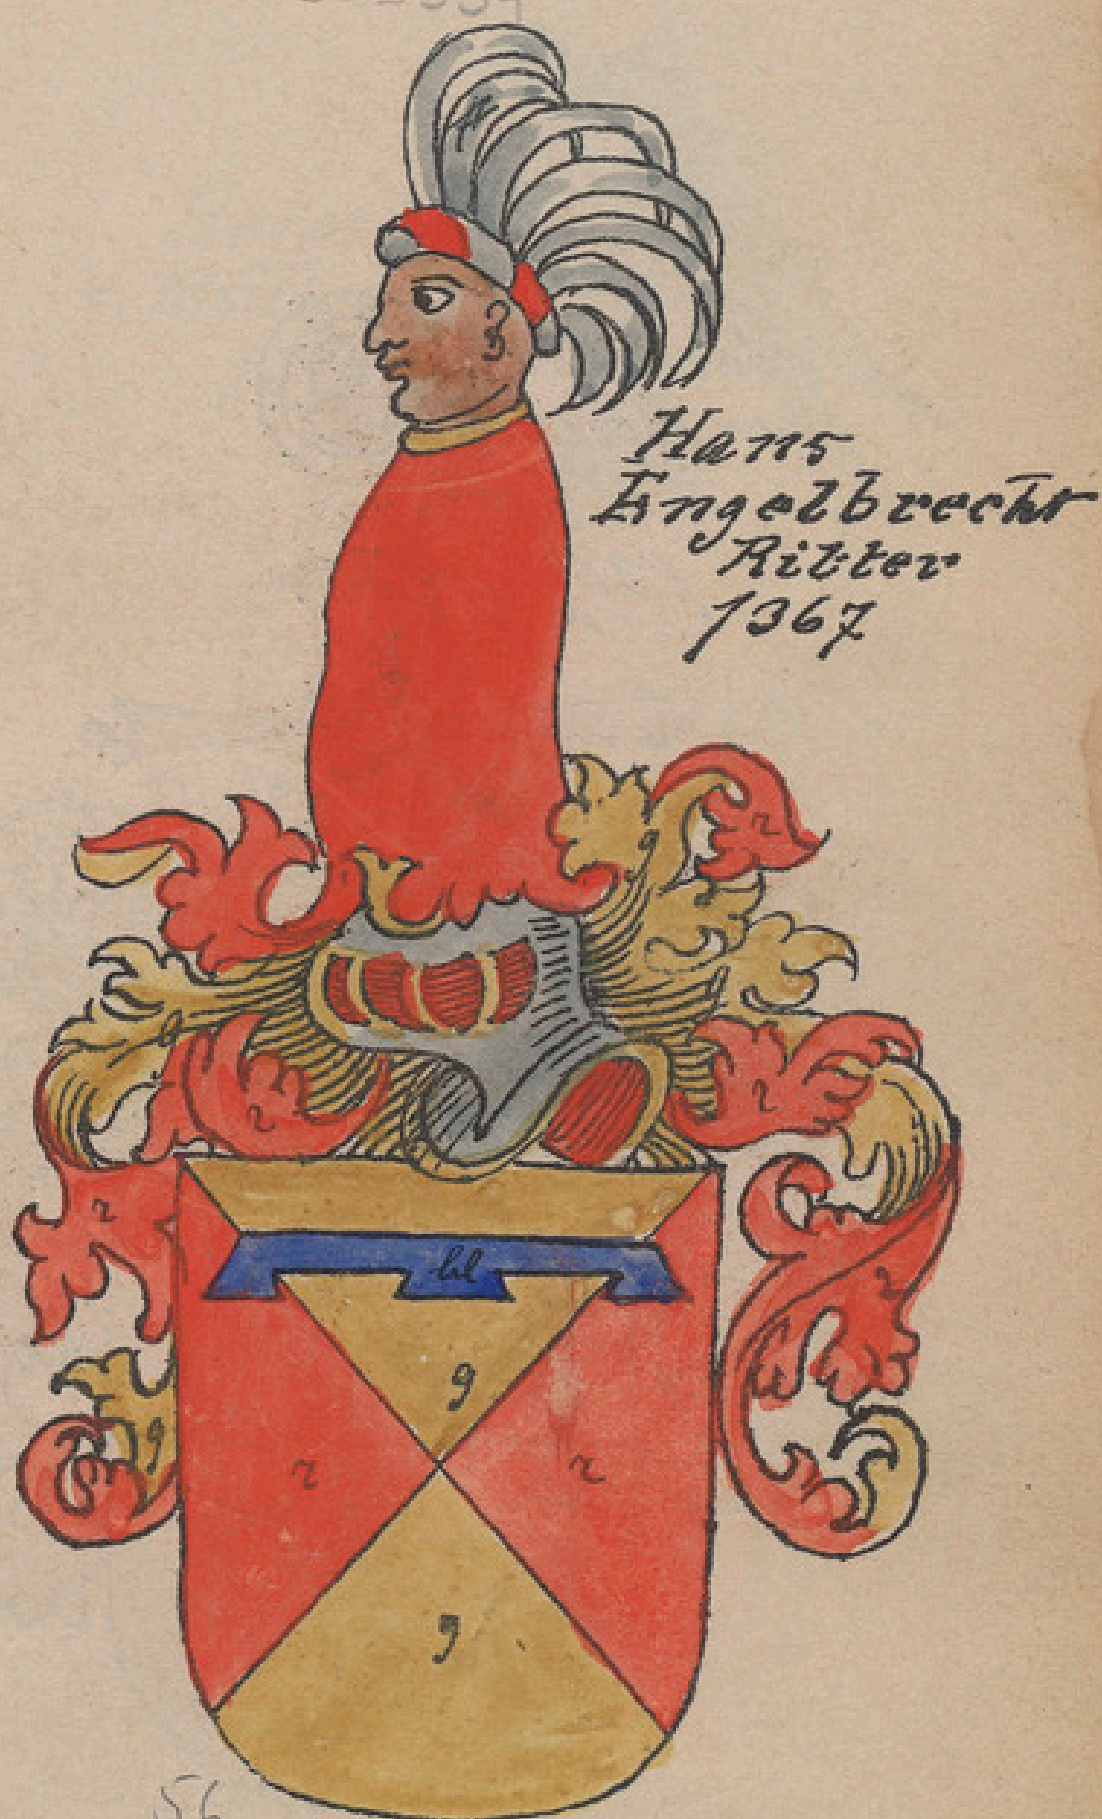 Hans
Engelbrecht
Ritter
1367
r
g
r
g
r
r
bl
r
g
g
r
r
g
56